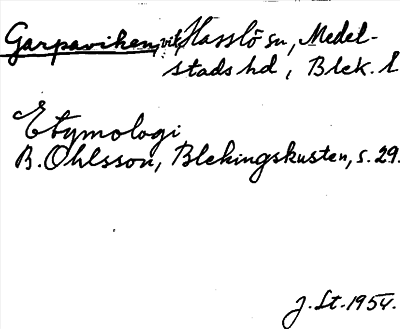 Garpaviken, vik, Hasslö sn, Medel-
stads hd, Blek. l
Etymologi
B. Ohlsson, Blekingskusten, s. 29.
J. St. 1954.